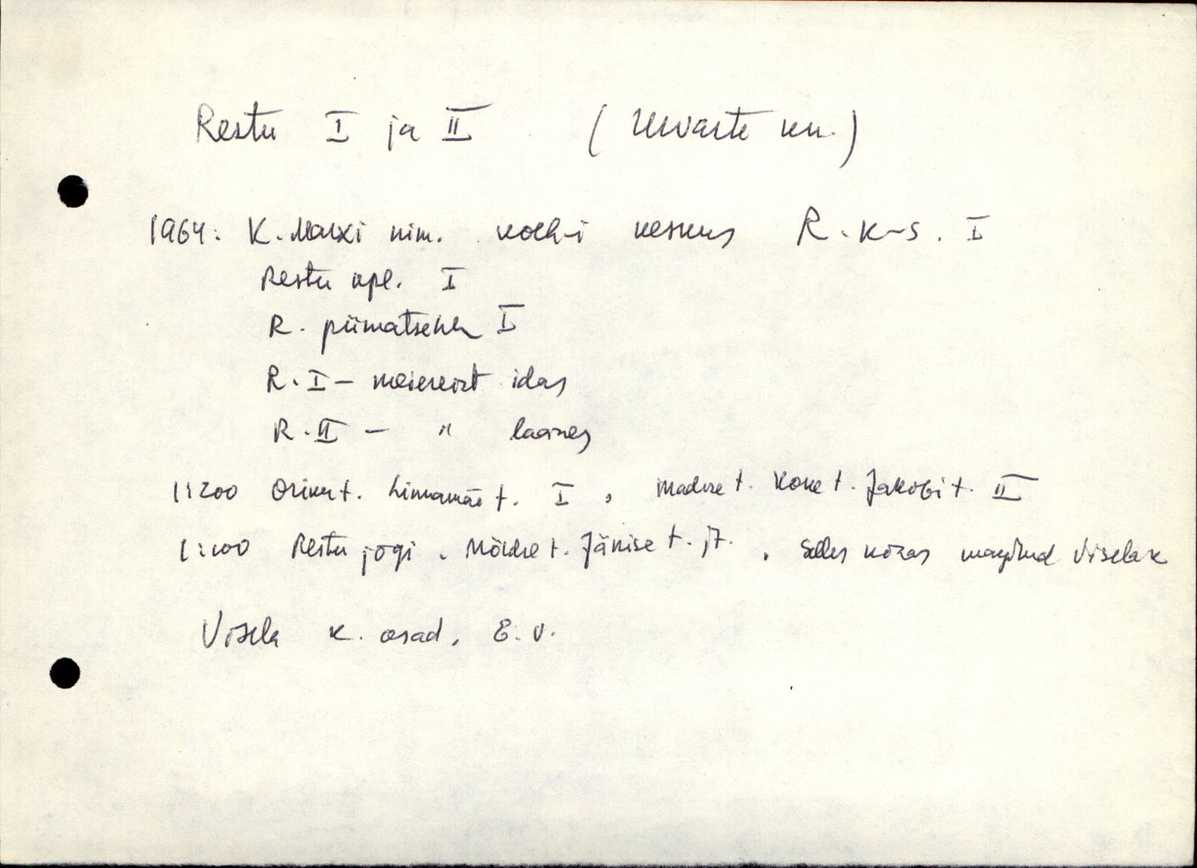 Restu I ja II (Urvaste kn.)
1964: K. Marxi nim. kolh-i keskus R. k-s. I
Restu apl. I
R. piimatsehh I
R. I – meiereist idas
R. II – " läänes
1:200 Oriku t. Linnamäe t. I, Madise t. Kone t. Jakobi t. II
1:100 Restu jõgi. Möldre t. Jänise t. jt. , selles kõzas märgitud Visela k
Visela k. osad. E. V.